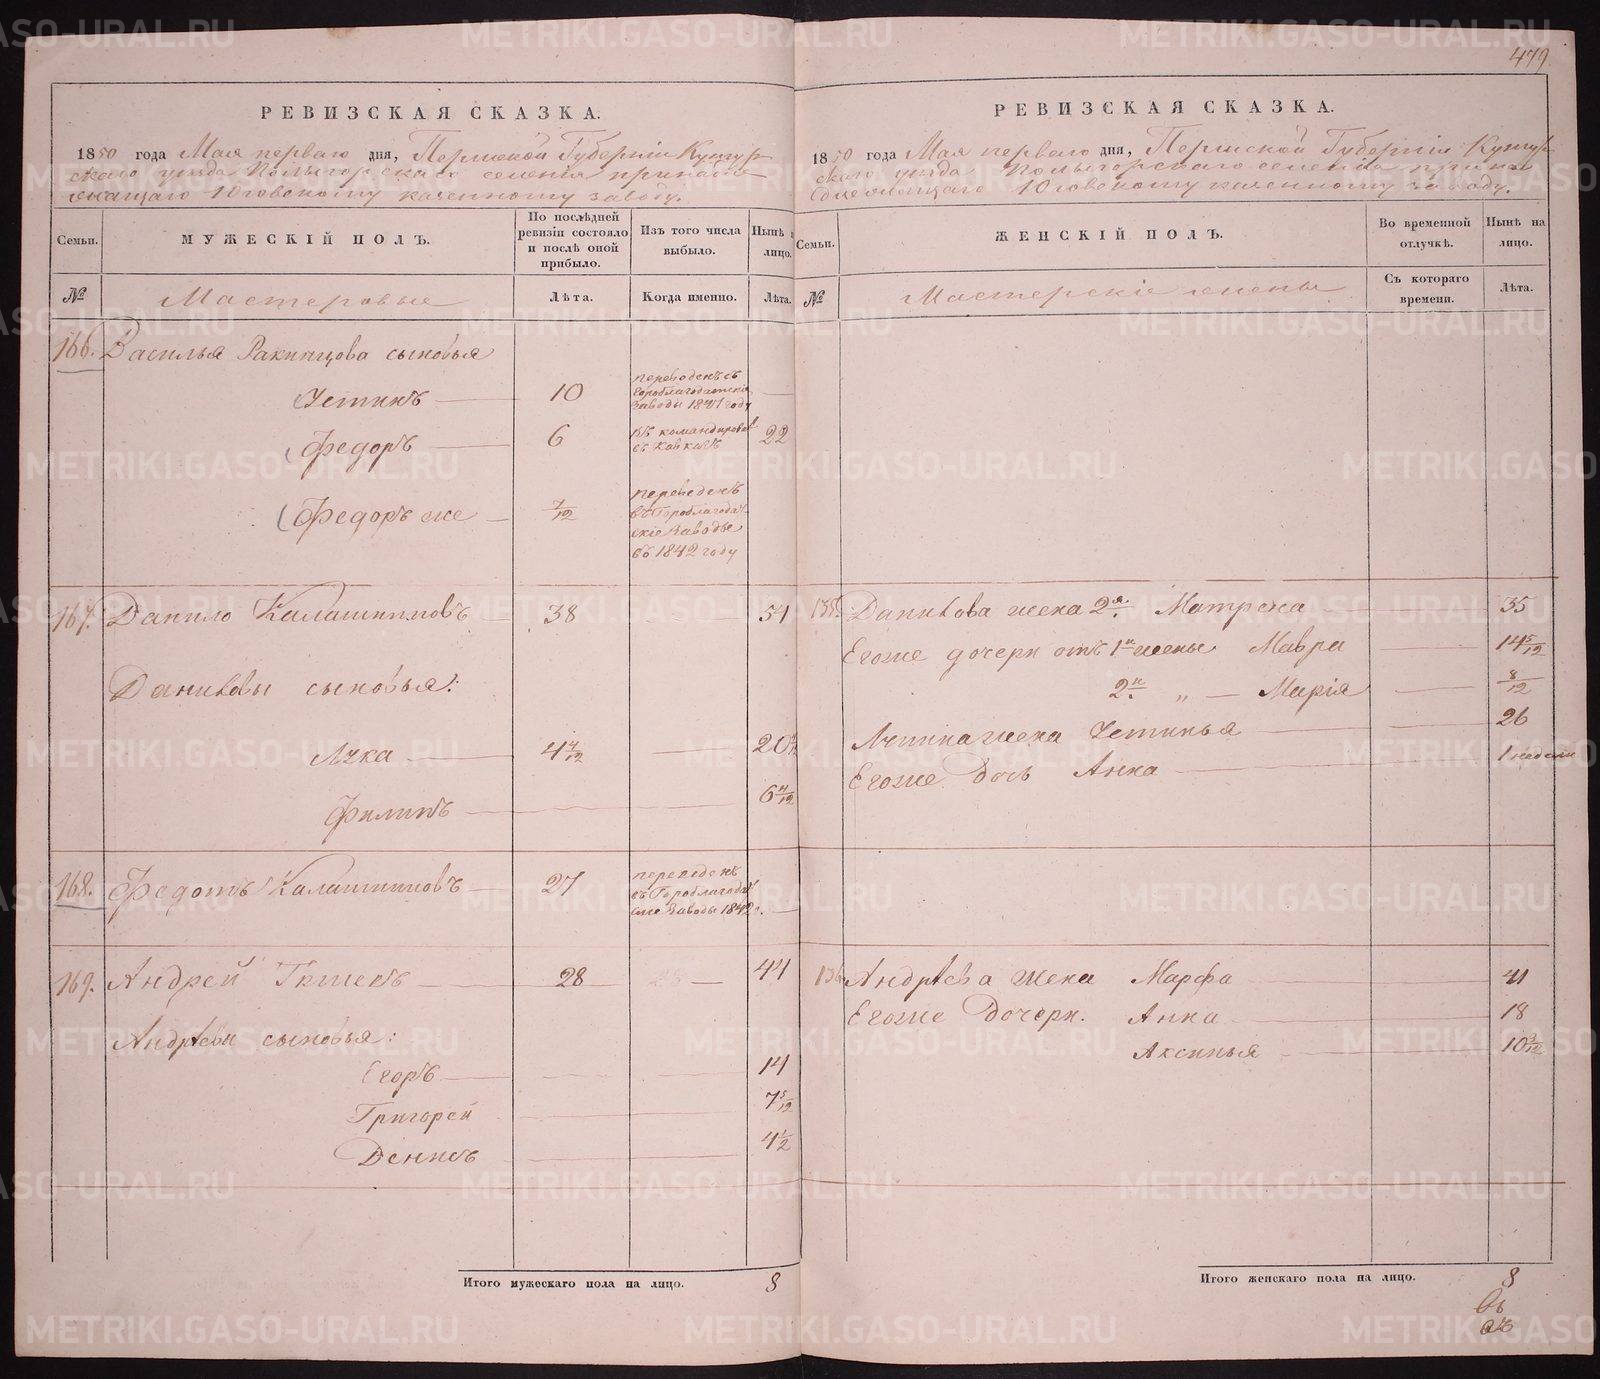 479
РЕВИЗСКАЯ СКАЗКА.
1850 года Мая перваго дня, Пермской Губерніи Кунгур
скаго уезда Полыгорскаго селенія принадле
жащаго Юговскому казенному заводу.
Семьи.
МУЖЕСКІЙ ПОЛЪ.
По послѣдней ревизіи состояло и послѣ оной прибыло.
Изъ того числа выбыло.
Нынѣ на лицо.
№
Мастеровые
Лѣта.
Когда именно.
Лѣта.
166. Василья Ракинцова сыновья
Устинъ 10 переведенъ съ Гороблагодатскіе Заводы 1841 году
Федоръ 6 въ командировкѣ съ Кавказѣ 22
Федоръ же 7/12 переведенъ въ Гороблагодатскіе Заводы съ 1842 году
167. Данило Калашниковъ 38 54
Даниловы сыновья:
Лука 4 4/12 20
Филипъ 6 11/12
168. Федотъ Калашниковъ 27 переведенъ въ Гороблагодатскіе Заводы 1842 г.
169. Андрей 28 44
Андрѣевы сыновья:
Егоръ 14
Григорей 7 5/12
Денисъ 4 1/2
Итого мужескаго пола на лицо. 8
РЕВИЗСКАЯ СКАЗКА.
1850 года Мая перваго дня, Пермской Губерніи Кунгур
скаго уезда Полыгорскаго селенія
Юговскому казенному заводу.
Семьи.
ЖЕНСКІЙ ПОЛЪ.
Во временной отлучкѣ.
Нынѣ на лицо.
№
Мастерскіе жены
Съ котораго времени.
Лѣта.
135. Данилова жена 2я. Матрена 35
Егоже дочери отъ 1й жены Мавра 14 5/12
2й " — Марія 8/12
Лукина жена Устинья 26
Егоже Дочь Анна 1 недели
136 Андрѣева жена Марфа 41
Егоже Дочери. Анна 18
Аксинья 10 3/12
Итого женскаго пола на лицо. 8
METRIKI.GASO-URAL.RU